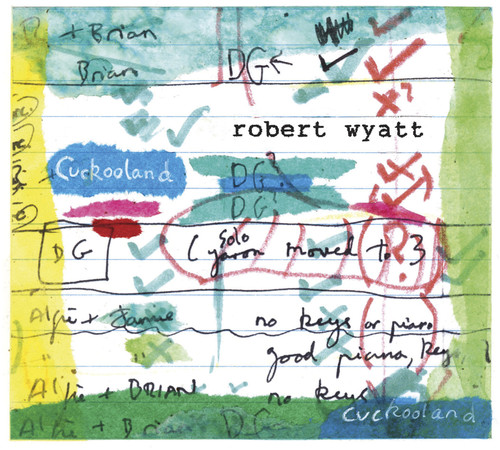 + Brian
Brian DG←
x?
robert wyatt
Cuckooland DG?
DG?
solo
DG (yaron moved to ? 3
Alfie + Jamie no keys or piano
" good piano, key
Alfie + BRIAN no keys
cuckooland
Alfie + Brian DG